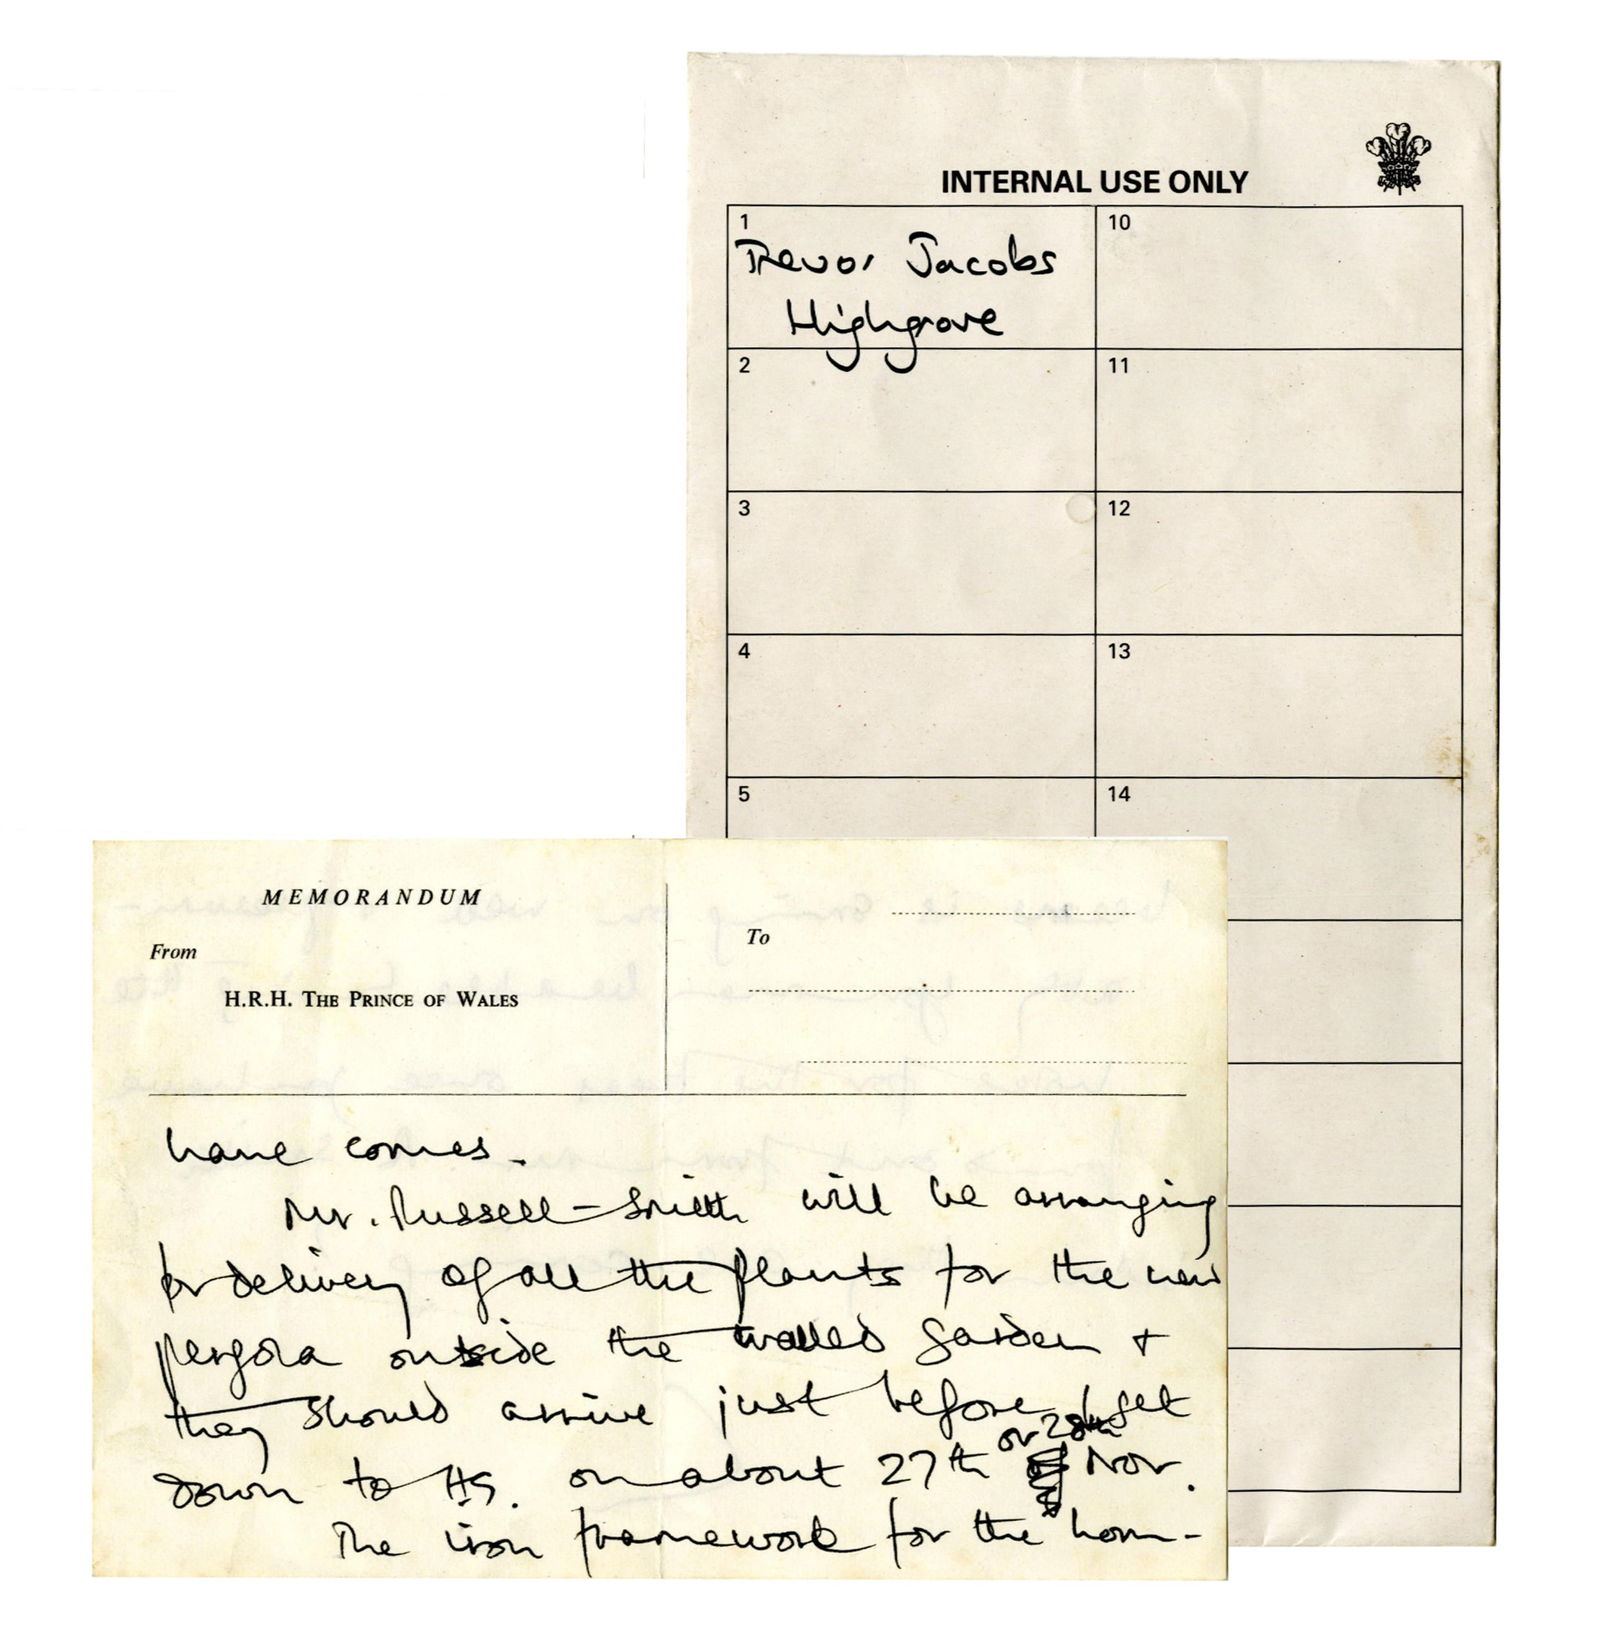 INTERNAL USE ONLY
1
Trevor Jacobs
Highgrove
10
2
11
3
12
4
13
5
14
MEMORANDUM
From
H.R.H. THE PRINCE OF WALES
To
have comes.
Mr. Russell-Smith will be arranging
for delivery of all the plants for the new
pergola outside the walled garden +
they should arrive just before I get
down to HG. on about 27th or 28th Nov.
The iron framework for the horn-